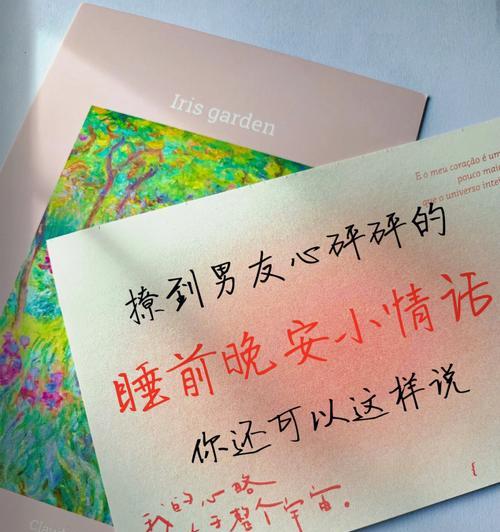 Iris garden
E o meu coração é um
pouco maio
que o universo intei
撩到男友心砰砰的
睡前晚安小情话
你还可以这样说
我的心略
大于整个宇宙。
{
Claud